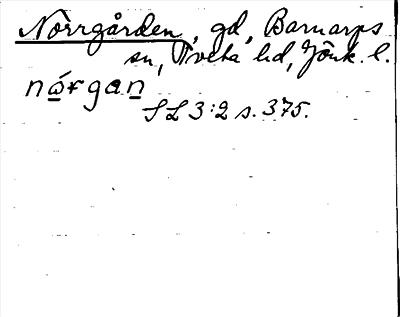 Norrgården, gd, Barnarps
sn, Tveta hd, Jönk. l.
nórgan
SL 3:2 s. 375.